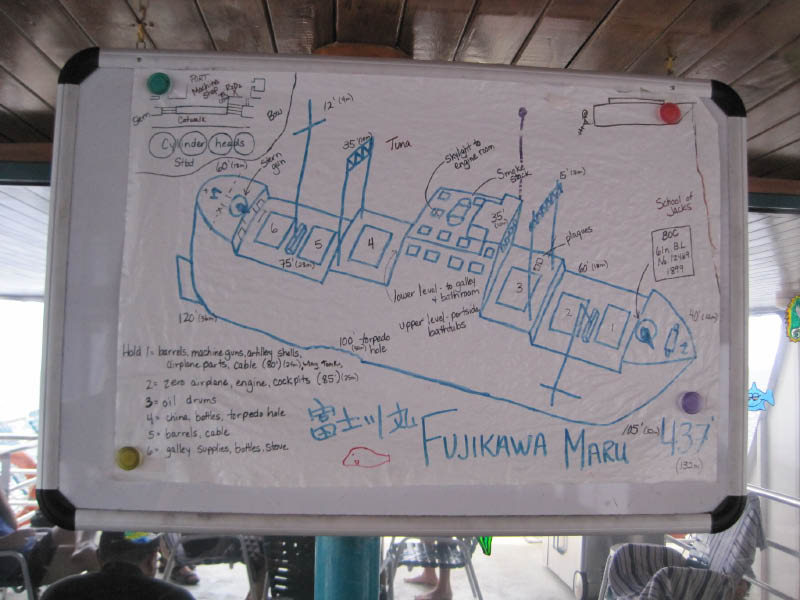 PORT
Machine
Shop
Stern
Catwalk
Bow
Cylinder heads
Stbd
60' (18m)
Stern
gun
12' (4m)
35' (10m)
Tuna
Skylight to
engine room
Smoke
stack
35'
15' (5m)
plaques
School of
Jacks
BOG
6In. B.L
No. 12469
1899
6
5
4
3
2
1
75' (23m)
60' (18m)
lower level - to galley
& bathroom
upper level - portside
bathtubs
40' (12m)
120' (36m)
100' torpedo
hole
Hold 1= barrels, machine guns, artilley shells,
airplane parts, cable (80') (24m),
2= zero airplane, engine, cockpits (85') (25m)
3= oil drums
4= china, bottles, torpedo hole
5= barrels, cable
6= galley supplies, bottles, stove
富士川丸
FUJIKAWA MARU
105' (32m)
437'
(132m)